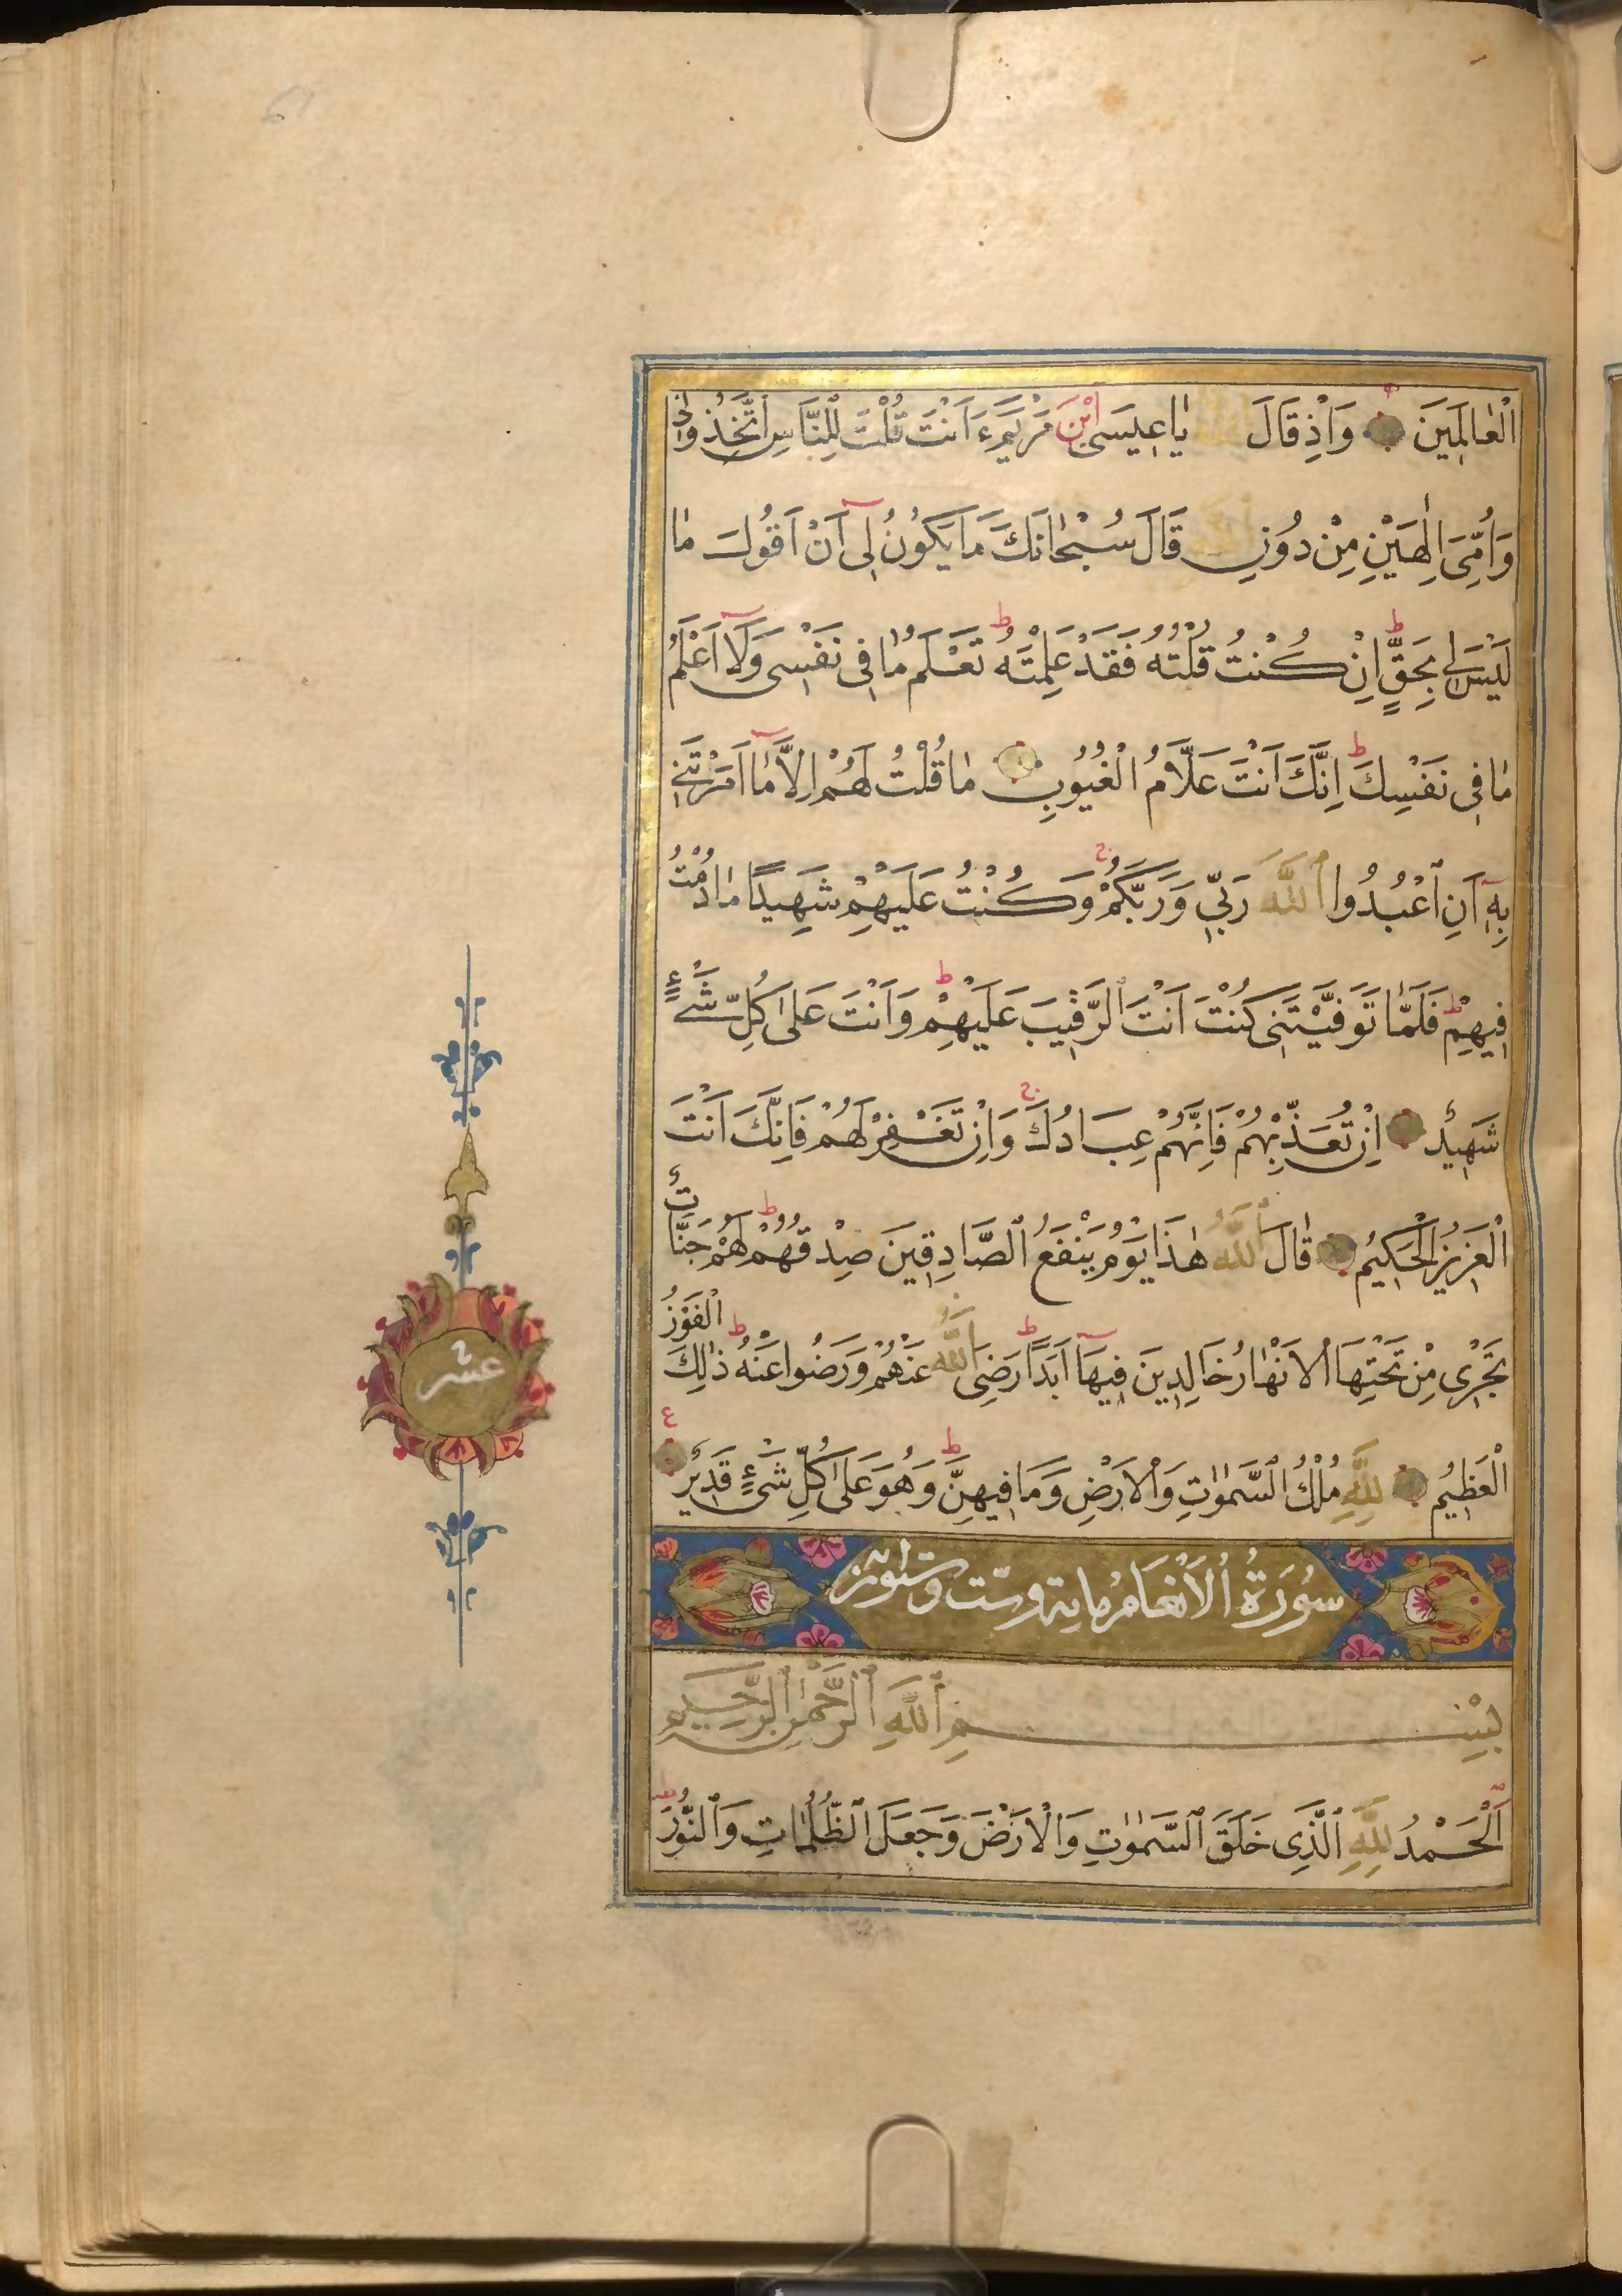 الْعَالَمِينَ وَاِذْ قَالَ يَا عِيسَى ابْنَ مَرْيَمَ ءَاَنْتَ قُلْتَ لِلنَّاسِ اتَّخِذُونِى
وَاُمِّىَ اِلٰهَيْنِ مِنْ دُونِ قَالَ سُبْحَانَكَ مَا يَكُونُ لِى اَنْ اَقُولَ مَا
لَيْسَ لِى بِحَقٍّ ط اِنْ كُنْتُ قُلْتُهُ فَقَدْ عَلِمْتَهُ ط تَعْلَمُ مَا فِى نَفْسِى وَلَا اَعْلَمُ
مَا فِى نَفْسِكَ ط اِنَّكَ اَنْتَ عَلَّامُ الْغُيُوبِ مَا قُلْتُ لَهُمْ اِلَّا مَا اَمَرْتَنِى
بِهِ اَنِ اعْبُدُوا اللّٰهَ رَبِّى وَرَبَّكُمْ ج وَكُنْتُ عَلَيْهِمْ شَهِيدًا مَا دُمْتُ
فِيهِمْ ط فَلَمَّا تَوَفَّيْتَنِى كُنْتَ اَنْتَ الرَّقِيبَ عَلَيْهِمْ ط وَاَنْتَ عَلٰى كُلِّ شَىْءٍ
شَهِيدٌ اِنْ تُعَذِّبْهُمْ فَاِنَّهُمْ عِبَادُكَ ج وَاِنْ تَغْفِرْ لَهُمْ فَاِنَّكَ اَنْتَ
الْعَزِيزُ الْحَكِيمُ قَالَ اللّٰهُ هٰذَا يَوْمُ يَنْفَعُ الصَّادِقِينَ صِدْقُهُمْ ط لَهُمْ جَنَّاتٌ
تَجْرِى مِنْ تَحْتِهَا الْاَنْهَارُ خَالِدِينَ فِيهَا اَبَدًا ط رَضِىَ اللّٰهُ عَنْهُمْ وَرَضُوا عَنْهُ ط ذٰلِكَ الْفَوْزُ
الْعَظِيمُ لِلّٰهِ مُلْكُ السَّمٰوَاتِ وَالْاَرْضِ وَمَا فِيهِنَّ ط وَهُوَ عَلٰى كُلِّ شَىْءٍ قَدِيرٌ ع
سُورَةُ الْاَنْعَامِ مِایة وستّ وستون
بِسْمِ اللّٰهِ الرَّحْمٰنِ الرَّحِيمِ
اَلْحَمْدُ لِلّٰهِ الَّذِى خَلَقَ السَّمٰوَاتِ وَالْاَرْضَ وَجَعَلَ الظُّلُمَاتِ وَالنُّورَ
عشر